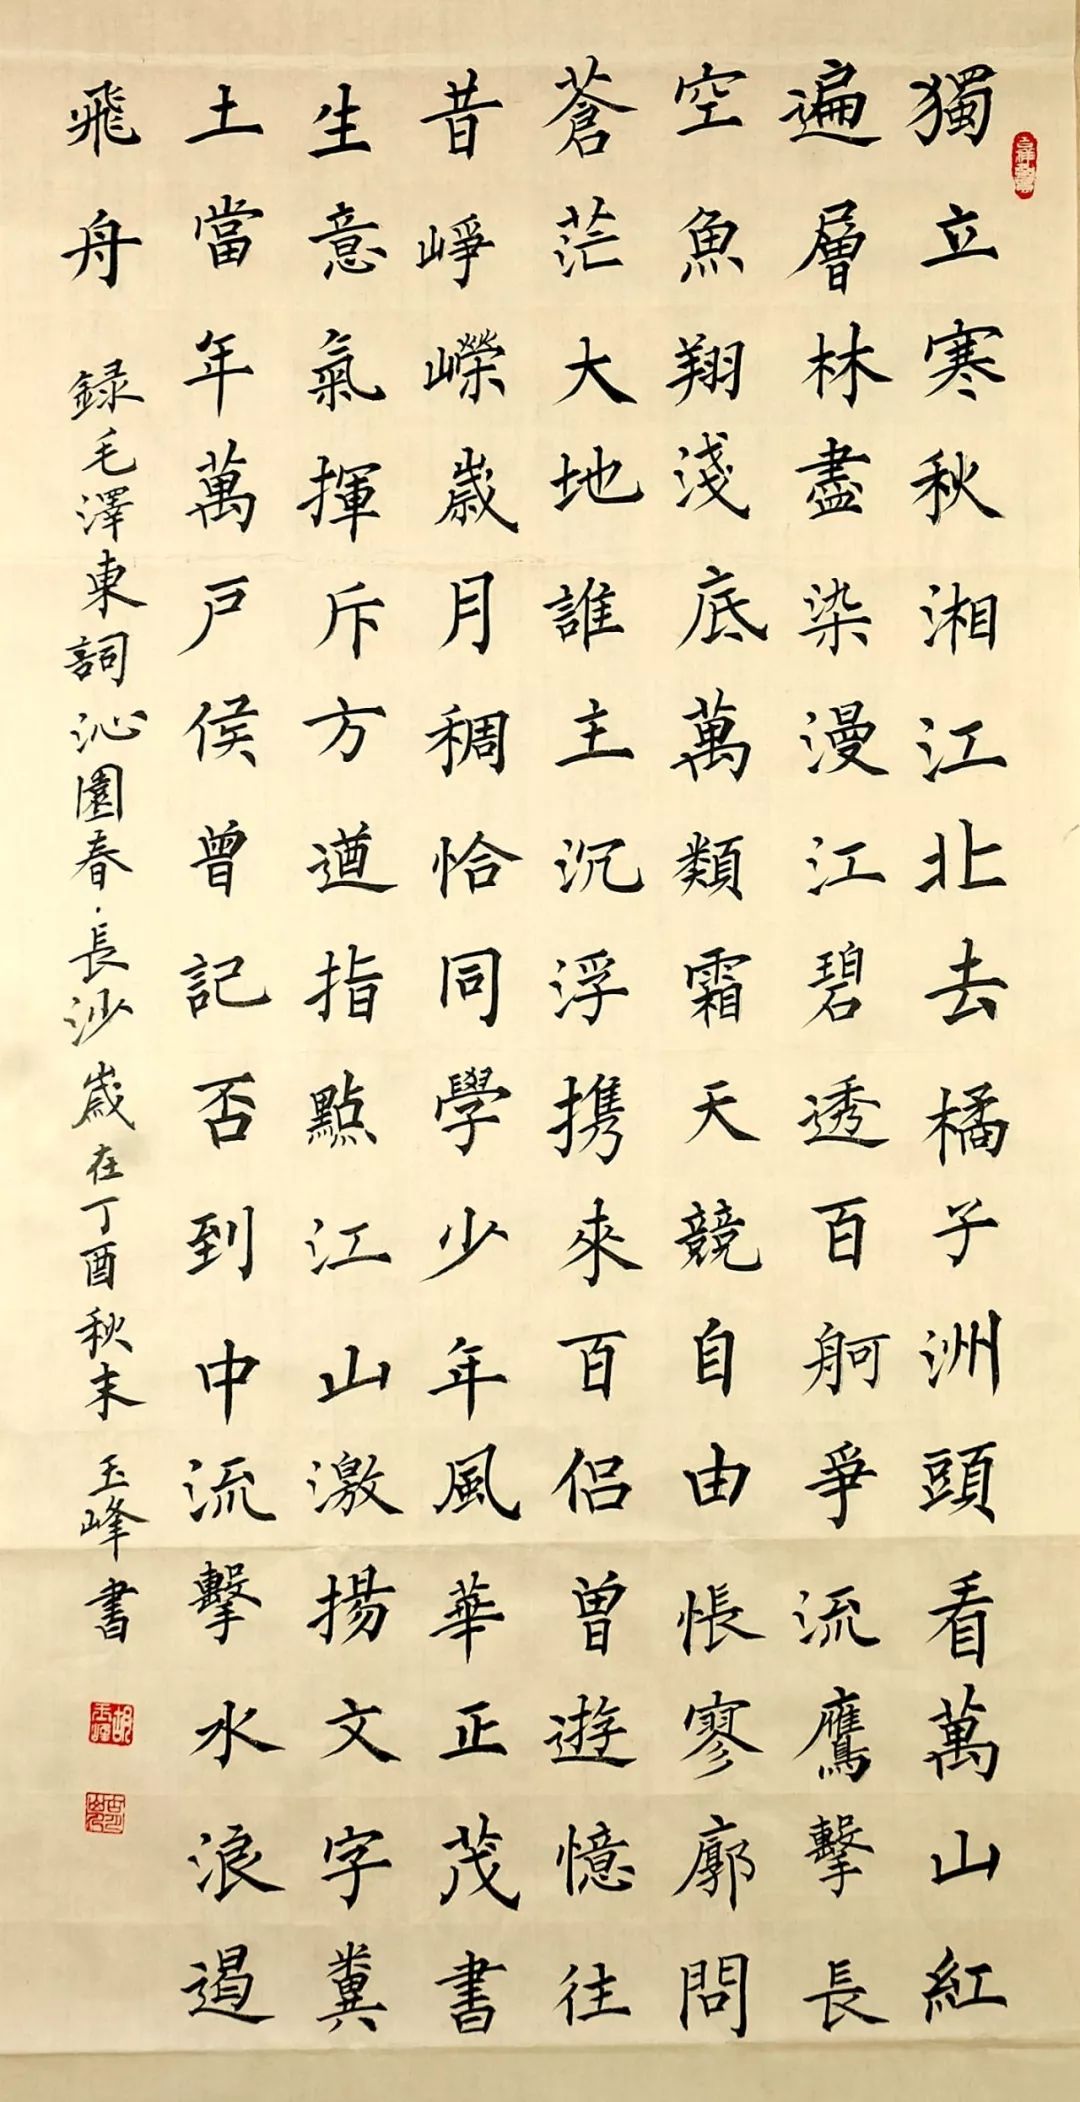 獨立寒秋湘江北去橘子洲頭看萬山紅
遍層林盡染漫江碧透百舸爭流鷹擊長
空魚翔淺底萬類霜天競自由悵寥廓問
蒼茫大地誰主沉浮携來百侣曾遊憶往
昔崢嶸歲月稠恰同學少年風華正茂書
生意氣揮斥方遒指點江山激揚文字糞
土當年萬戶侯曾記否到中流擊水浪遏
飛舟 録毛澤東詞沁園春·長沙歲在丁酉秋末 玉峰書